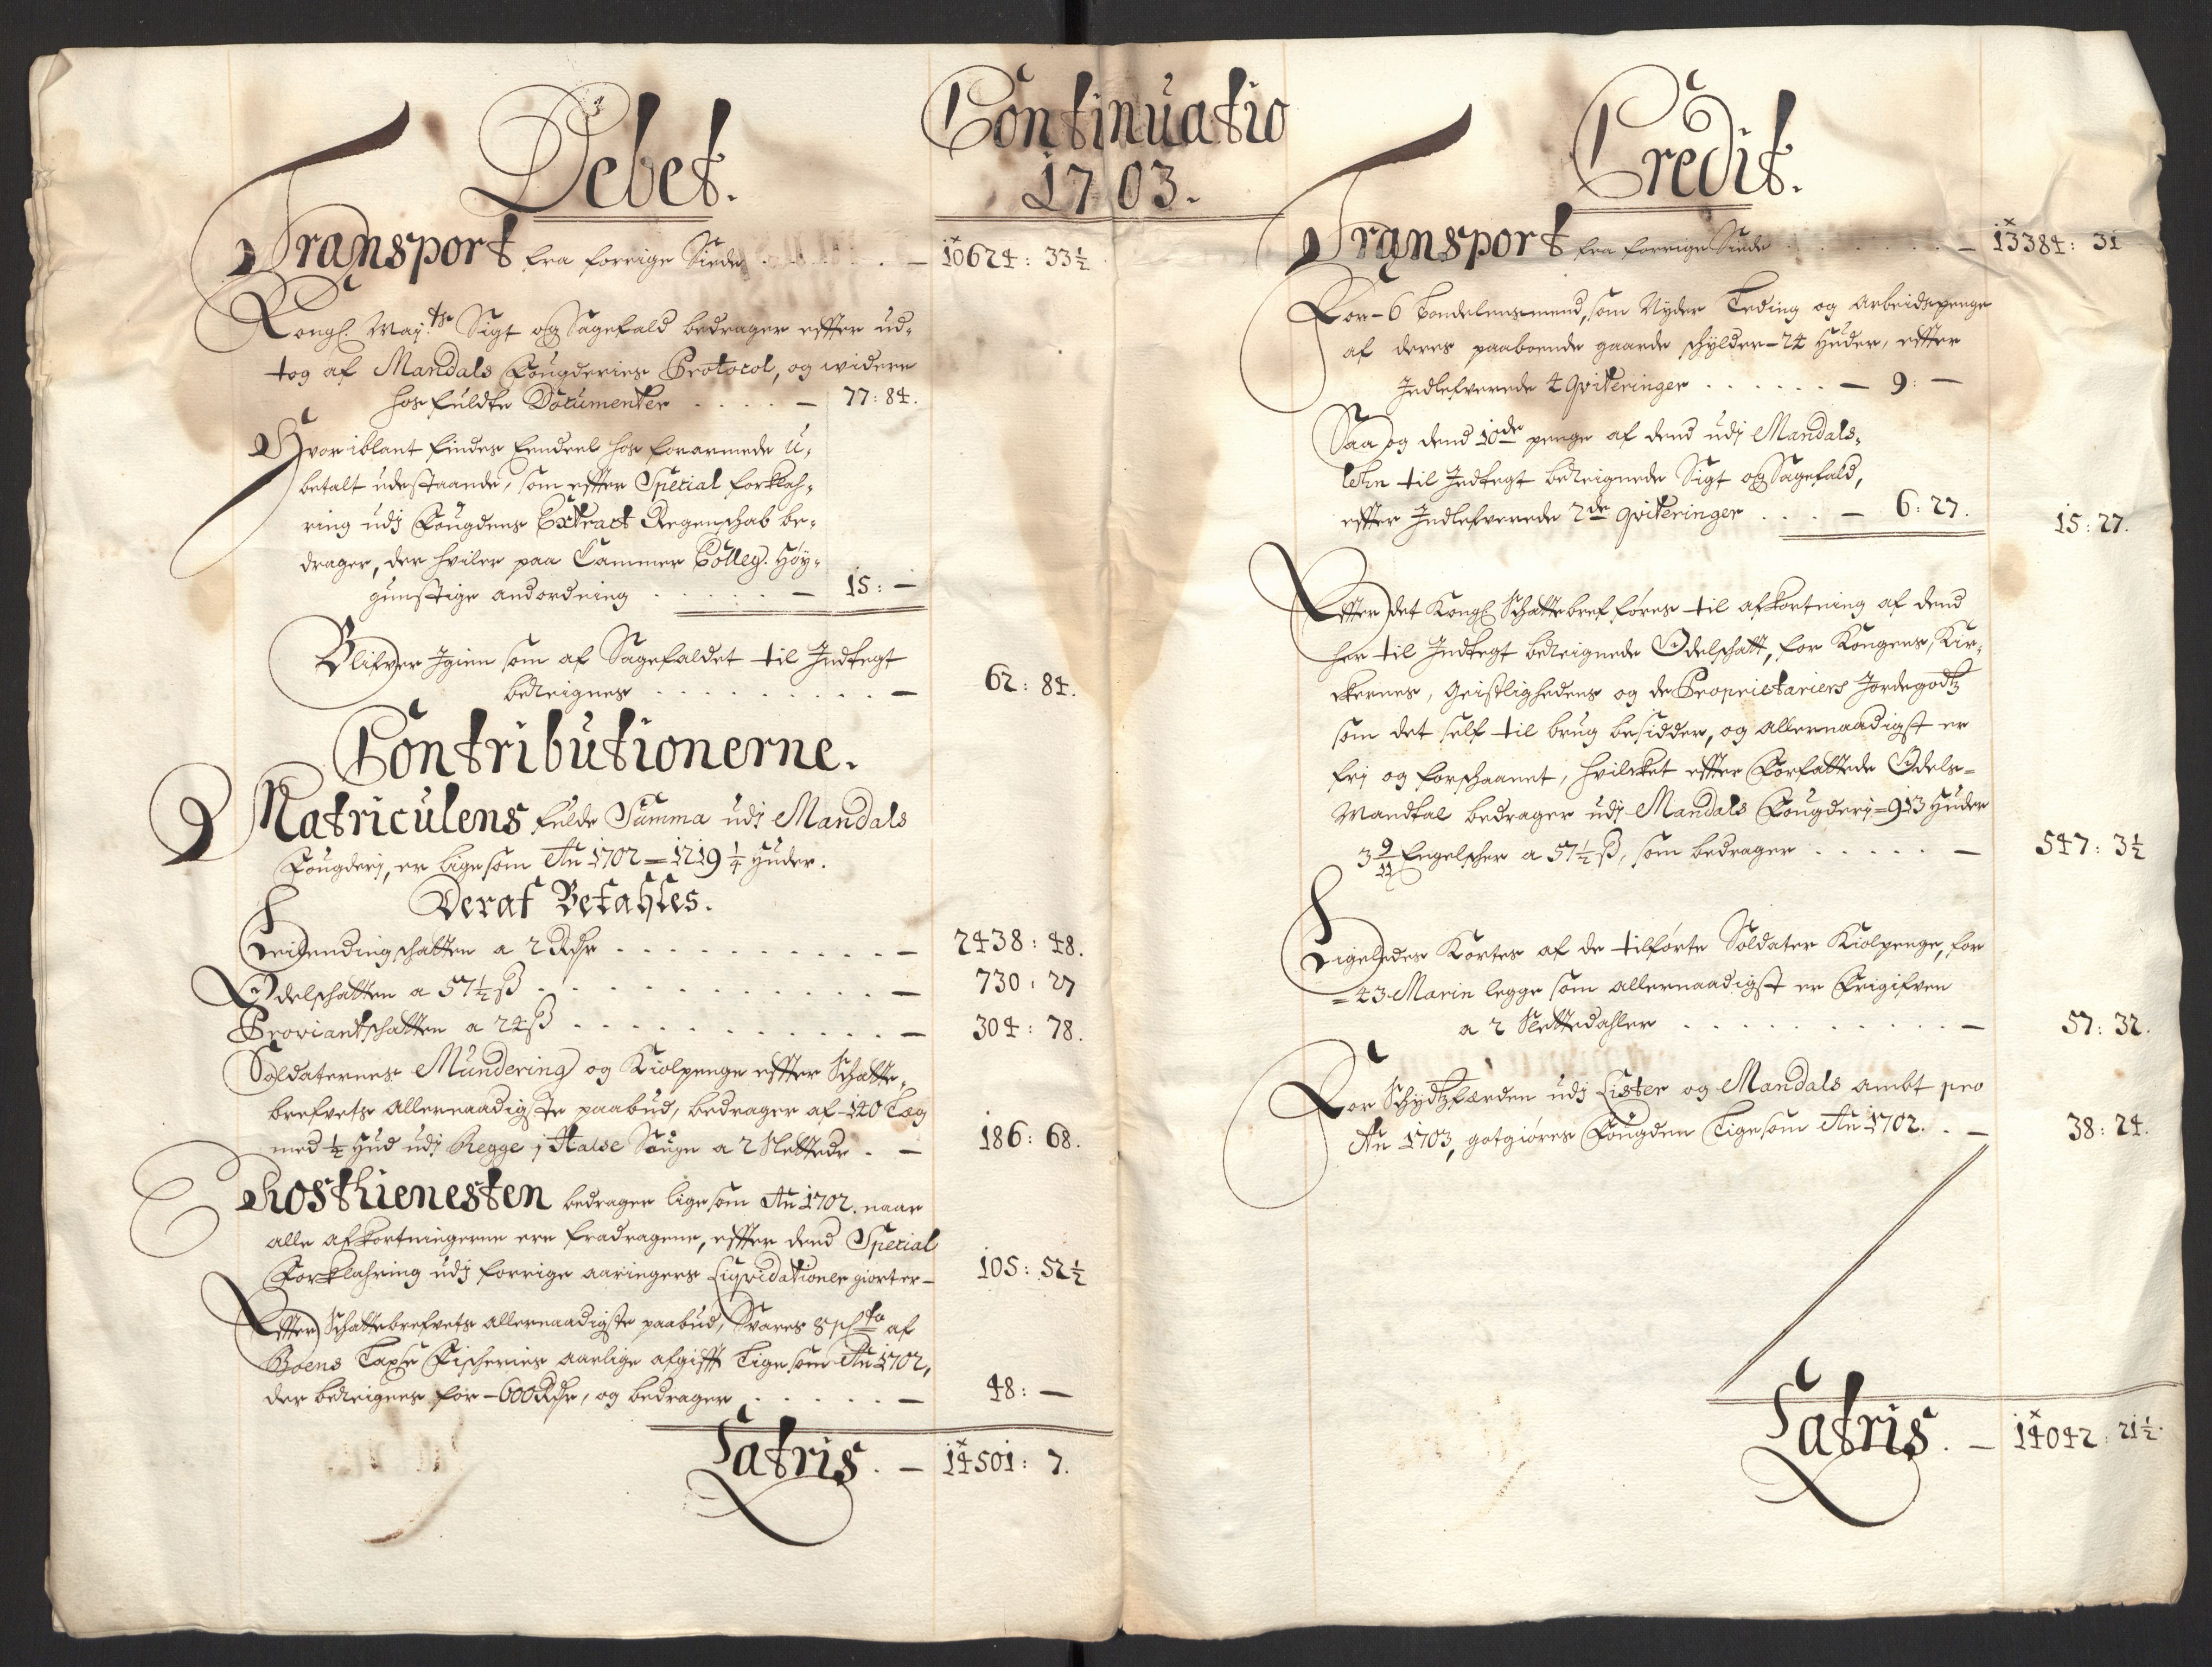 Debet.
Continuatio
1703.
Transport fra forrige Siide . . . — 10624 : 33½
Kongl. May:tz Sigt og Sagefald bedrager effter ud-
tog af Mandals Fougderies Protocol, og widere
hos fuldte Documenter . . . . — 77 : 84.
Hvor iblant findes Eendeel hos forarmede U-
betalt udestaaende, som effter Special forklah-
ring udj Fougdens Extract Regenschab be-
drager, der hviler paa Cammer Colleg: Høy-
gunstige andordning . . . . . — 15 : —
Blifver Igien som af Sagefaldet til Indtegt
bereignes . . . . . . . . — 62 : 84.
Contributionerne.
Matriculens fulde Summa udj Mandals
Fougderj, er ligesom Ao 1702 = 1219¼ Huder.
Deraf Betahles.
Leilendingschatten a 2 Rdr . . . . . . . . — 2438 : 48.
Odelschatten a 57½ ß . . . . . . . . — 730 : 27
Proviantschatten a 24 ß . . . . . . . . — 304 : 78.
Soldaternes Mundering og Kiolpenge effter Schatte-
brefvets allernaadigste paabud, bedrager af - 140 Læg
med ½ Hud udj Regge i Halse Sougn a 2 Slettedr . — 186 : 68.
Rosthienesten bedrager ligesom Ao 1702. naar
alle afkortningerne ere fradragene, effter dend Special
Forklahring udj forrige aaringers Liqvidationer giort er — 105 : 52½
Effter Schattebrefvets allernaadigste paabud, Svares 8 pCto af
Boens Laxe Fischeries aarlige afgifft Ligesom Ao 1702,
der bereignes for - 600 Rdr, og bedrager . . . . . — 48 : —
Latris . — 14501 : 7.
Credit.
Transport fra forrige Siide . . . . . . — 13384 : 31
For - 6 Bondelensmend, som Nyder Leding og Arbeidspenge
af deres paaboende gaarde schylder - 24 Huder, effter
Indlefverede 4 Qviteringer . . . . . . — 9 : —
Saa og dend 10de penge af dend udj Mandals
lehn til Indtegt bereignede Sigt og Sagefald,
effter Indlefverede 2de qviteringer . . . — 6 : 27. 15 : 27.
Effter det Kongl Schattebref føres til afkortning af dend
her til Indtegt bereignede Odelschatt, for Kongens, Kir-
ckernes, Geistlighedens og de Proprietariers Jordegodtz
som det self til brug besidder, og allernaadigst er
frj og forschaanet, hvilcket effter Forfattede Odels-
Mandtal bedrager udj Mandals Fougderj = 913 Huder
3 9/11 Engelscher a 57½ ß, som bedrager . . . . . — 547 : 3½
Ligeledes Kortes af de tilførte Soldater Kiolpenge, for
= 43 Marin legge som allernaadigst er Frigifven
a 2 Slettedahler . . . . . . . . . . — 57 : 32.
For Schydtzfærden udj Lister og Mandals ambt pro
Ao 1703, gotgiøres Fougden Ligesom Ao 1702. . — 38 : 24.
Latris . — 14042 : 21½.